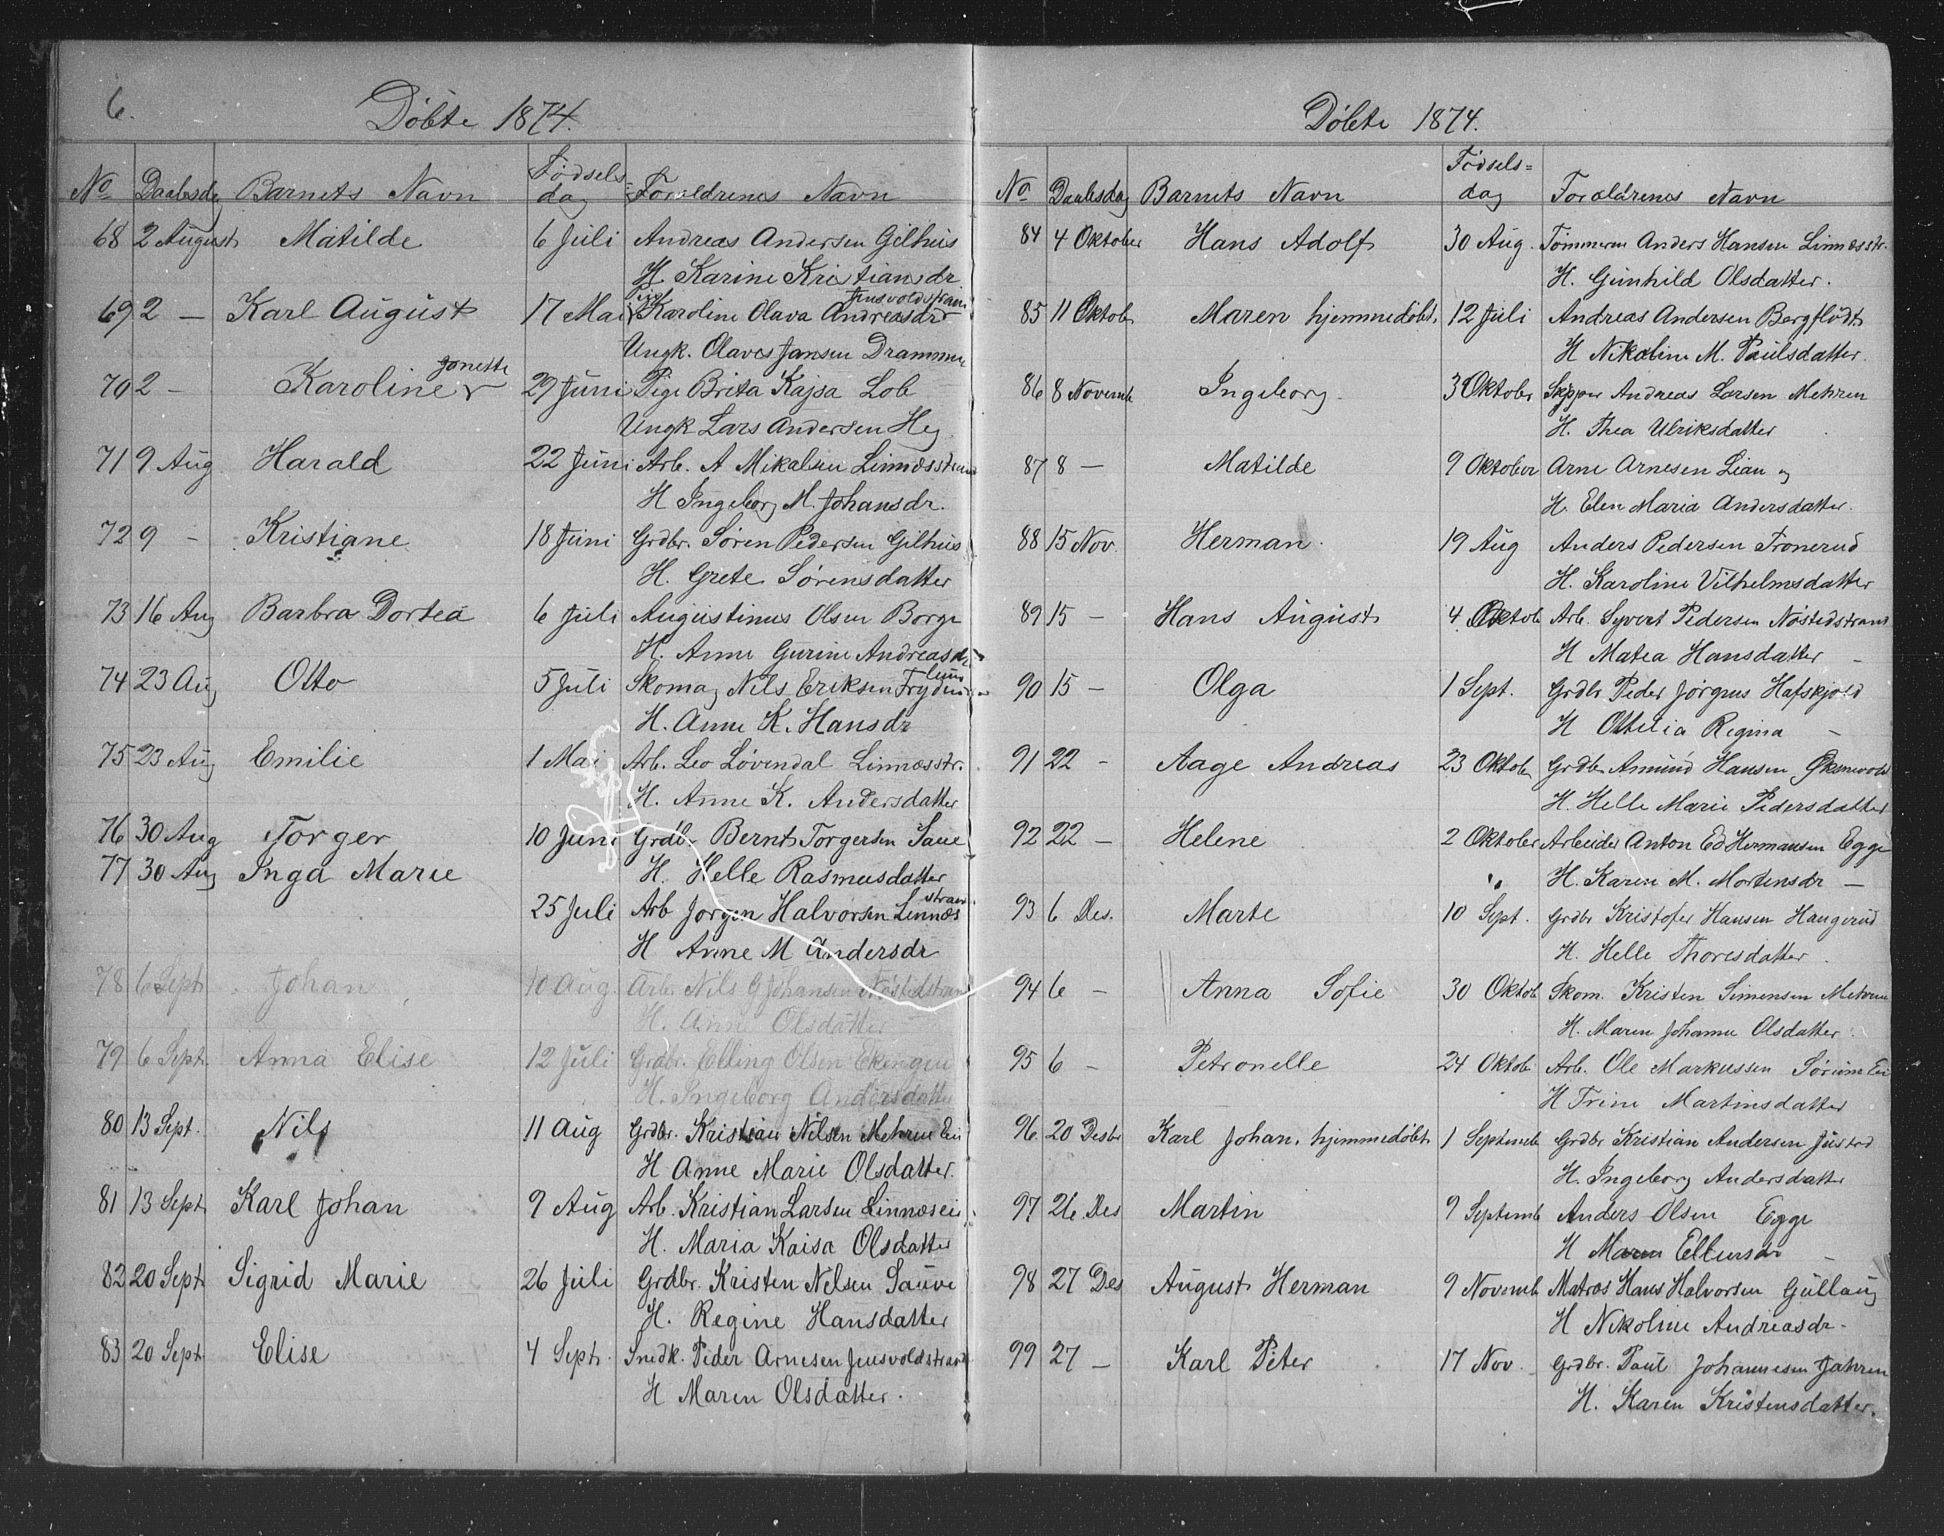 6.
Döbte 1874.
No Daabsdag Barnets Navn Födsels=dag Forældrenes Navn
68 2 August Matilde 6 Juli Andreas Andersen Gilhus
H. Karine Kristiansdr
69 2 — Karl August 17 Mai Pige Karoline Olava Andreasdr Jensvoldstrand
Ungk. Olaves Jansen Drammen
70 2 — Karoline Jonette 29 Juni Pige Brita Kajsa Lob
Ungk Lars Andersen Heg
71 9 Aug Harald 22 Juni Arb. A Mikalsen Linnæsstrand
H Ingeborg M. Johansdr.
72 9 - Kristiane 18 Juni Grdbr. Sören Pedersen Gilhus
H. Grete Sörensdatter
73 16 Aug Barbra Dortea 6 Juli Augustinus Olsen Borge
H. Anne Gurine Andreasdr
74 23 Aug Otto 5 Juli Skomag Nils Eriksen Frydenlund
H. Anne K. Hansdr
75 23 Aug Emilie 1 Mai Arb. Leo Lövendal Linnæsstr.
H. Anne K. Andersdatter
76 30 Aug Torger 10 Juni Grdb. Bernt Torgersen Saue
77 30 Aug Inga Marie H. Helle Rasmusdatter
25 Juli Arb Jorgen Halvorsen Linnæsstrand
H Anne M Andersdr
78 6 Sept Johan 10 Aug. Arb. Nils G Johansen Nöstedstrand
H. Anne Olsdatter
79 6 Sept. Anna Elise 12 Juli Grdbr. Elling Olsen Ekengen
H. Ingeborg Andersdatter
80 13 Sept. Nils 11 Aug Grdbr. Kristian Nilsen Mehren Ein
H Anne Marie Olsdatter.
81 13 Sept Karl Johan 9 Aug Arb. Kristian Larsen Linnæseie
H. Maria Kaisa Olsdatter
82 20 Sept Sigrid Marie 26 Juli Grdbr. Kristen Nilsen Sauve
H. Regine Hansdatter
83 20 Sept Elise 4 Sept. Snedk. Peder Arnesen Jensvoldstrand
H Maren Olsdatter.
Döbte 1874.
No Daabsdag Barnets Navn Födsels=dag Forældrenes Navn
84 4 Oktober Hans Adolf 30 Aug. Tömmerm Anders Hansen Linnæsstr.
H. Gunhild Olsdatter.
85 11 Oktob Maren hjemmedöbt. 12 Juli Andreas Andersen Bergflödt
H Nikoline M. Paulsdatter.
86 8 Novemb Ingeborg. 3 Oktober Skipper Andreas Larsen Mehren
H. Thea Ulriksdatter
87 8 — Matilde 9 Oktober Arne Arnesen Lian og
H. Elen Maria Andersdatter.
88 15 Nov. Herman. 19 Aug Anders Pedersen Tronerud
H. Karoline Vilhelmsdatter
89 15 - Hans August 4 Oktob Arb. Syvert Pedersen Nöstedstrand
H Matea Hansdatter —
90 15 — Olga 1 Sept. Grdbr Peder Jörgens Hafskjold
H Ottilia Regina —
91 22 - Aage Andreas 23 Oktober Grdbr Amund Hansen
H. Helle Marie Pedersdatter
92 22 — Helene 2 Oktober Arbeider Anton Ed Hermansen Egge
H. Karen M. Mortensdr —
93 6 Des. Marte 10 Sept. Grdbr Kristofer Hansen Haugerud
H. Helle Thoresdatter.
94 6 — Anna Sofie 30 Oktob Skom. Kristen Simensen Mehren
H. Maren Johanne Olsdatter.
95 6 - Petronelle 24 Oktob Arb. Ole Markussen Sörum Ei
H Trine Martinsdatter
96 20 Desbr Karl Johan. hjemmedöbt 1 Septemb Grdbr Kristian Andersen Justad
H. Ingeborg Andersdatter
97 26 Des Martin 9 Septemb Anders Olsen Egge
H Maren Ellensdr —
98 27 Des August Herman 9 Novemb Matros Hans Halvorsen Gullaug
H Nikoline Andreasdr.
99 27 — Karl Peter 17 Nov. Grdbr. Paul Johannesen Jahren
H. Karen Kristensdatter.